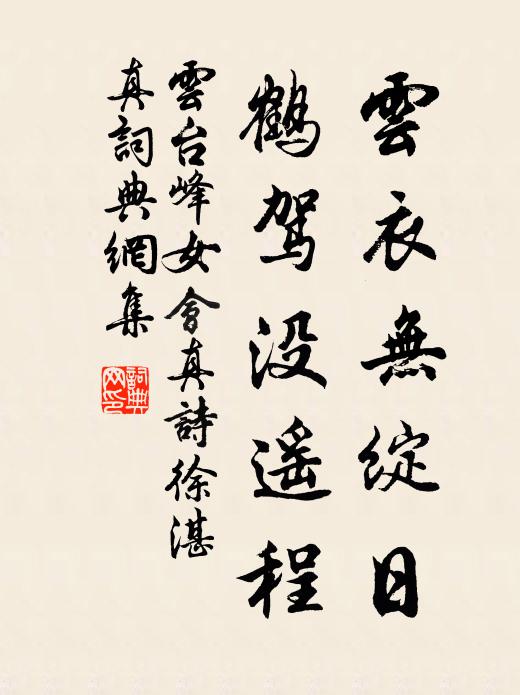 雲衣無綻日
鶴駕没遥程
雲台峰女會真詩徐湛
真詞典網集
詞典網印